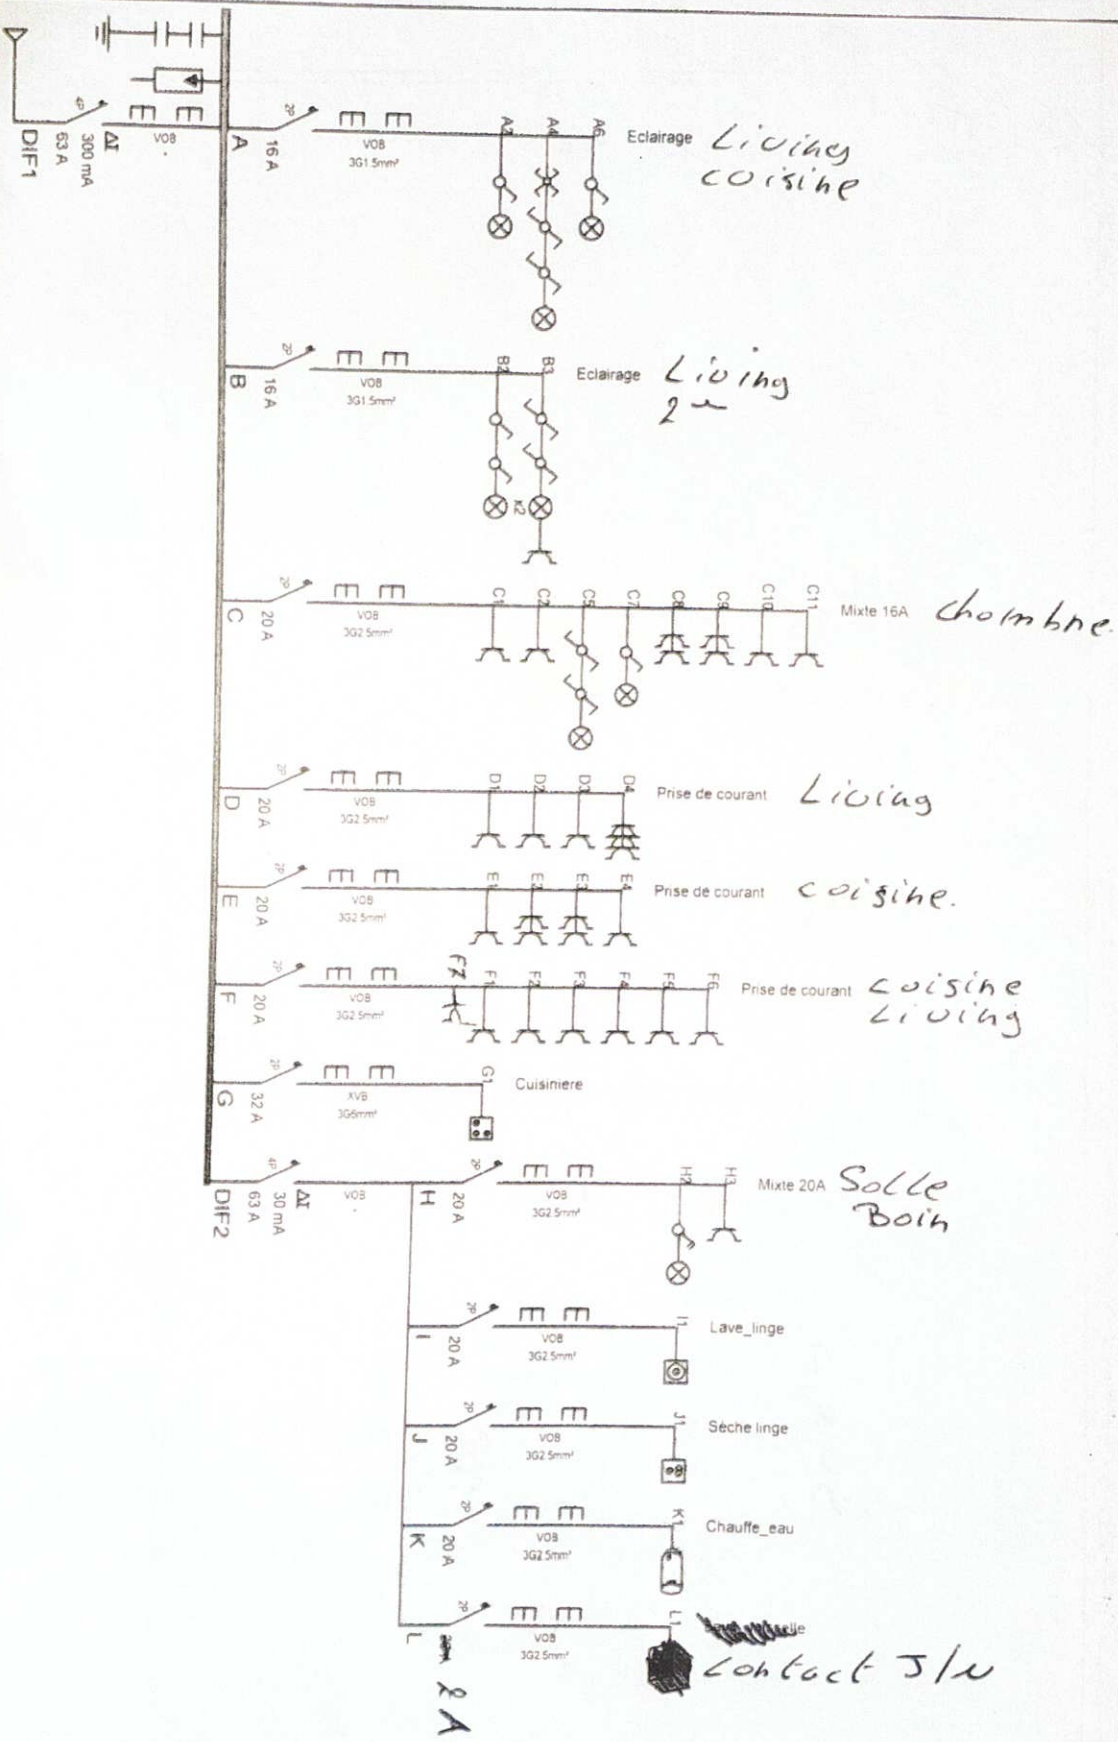 DIF1
63 A
300 mA
ΔI
4P
VOB
A
16 A
2P
VOB
3G1.5mm²
A3
A4
A6
Eclairage
Living
cuisine
B
16 A
2P
VOB
3G1.5mm²
B2
B3
x2
Eclairage
Living
C
20 A
2P
VOB
3G2.5mm²
C1
C2
C5
C7
C8
C9
C10
C11
Mixte 16A
Chambre.
D
20 A
2P
VOB
3G2.5mm²
D1
D2
D3
D4
Prise de courant
Living
E
20 A
2P
VOB
3G2.5mm²
E1
E2
E3
E4
Prise de courant
cuisine.
F
20 A
2P
VOB
3G2.5mm²
F7
F1
F2
F3
F4
F5
F6
Prise de courant
cuisine
Living
G
32 A
2P
XVB
3G6mm²
G1
Cuisiniere
DIF2
63 A
30 mA
ΔI
4P
VOB
H
20 A
2P
VOB
3G2.5mm²
H2
H3
Mixte 20A
Salle
Bain
I
20 A
2P
VOB
3G2.5mm²
I1
Lave_linge
J
20 A
2P
VOB
3G2.5mm²
J1
Sèche linge
K
20 A
2P
VOB
3G2.5mm²
K1
Chauffe_eau
L
2 A
2P
VOB
3G2.5mm²
L1
contact J/N